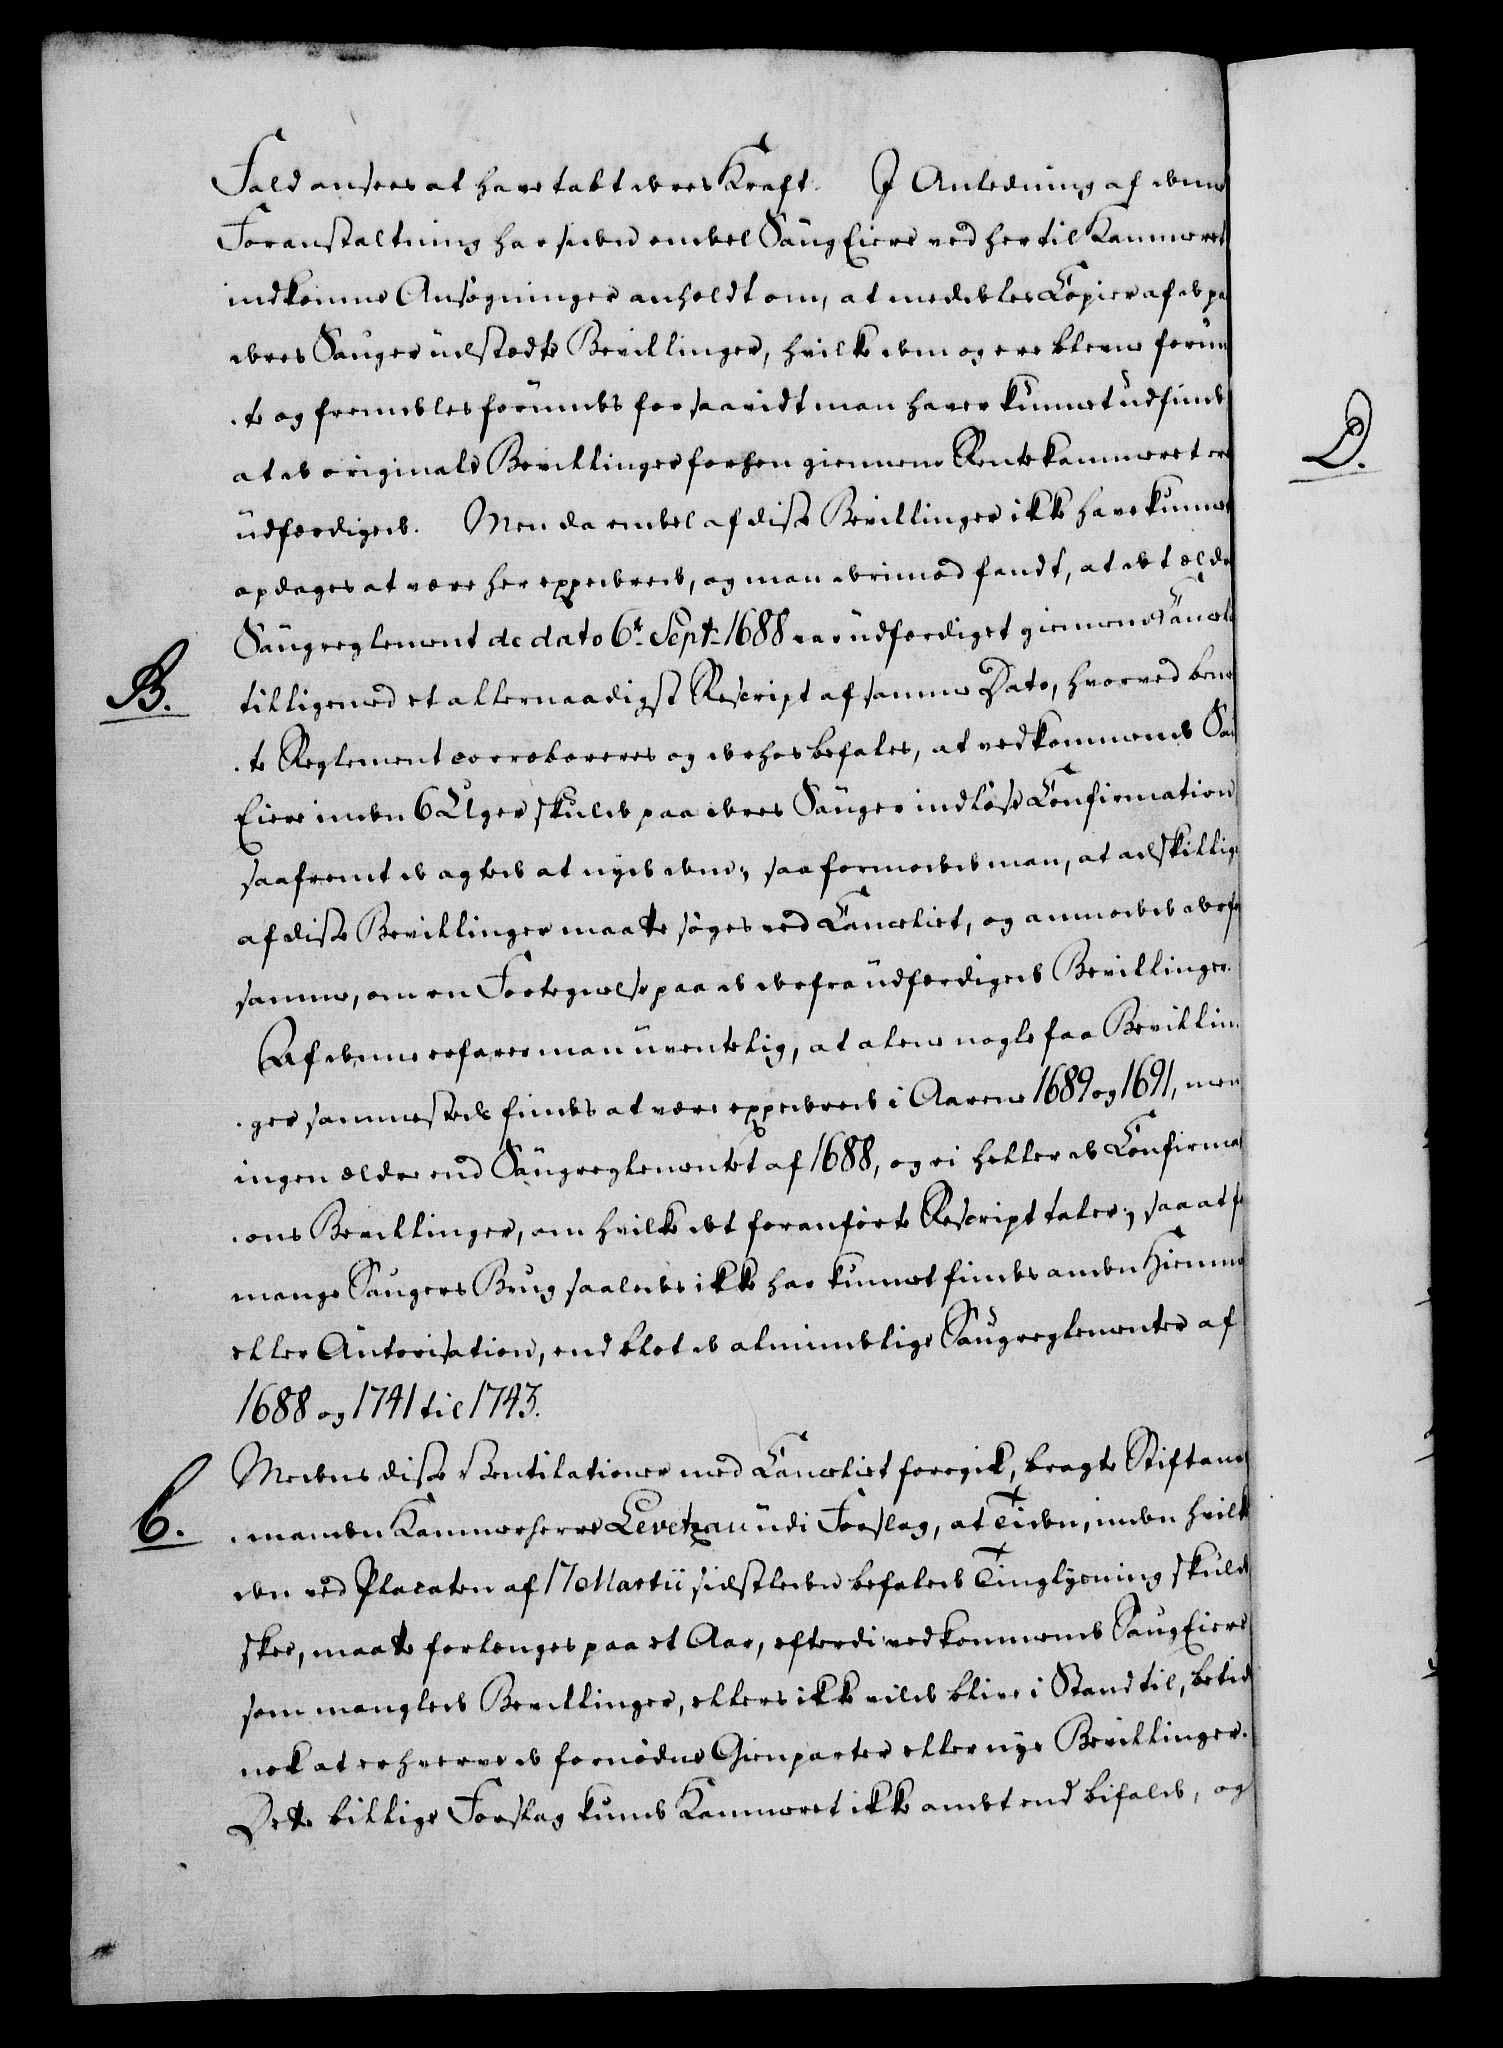 Fald ansees at have tabt deres Kraft. I Anledning af denne
Foranstaltning har siden endeel Saug Eiere ved her til Kammeret
indkomne Ansøgninger anholdt om, at meddeeles Copier af de pa
deres Sauger udstædte Bevillinger, hvilke dem og ere blevne forun
.te og fremdeles forundes forsaavidt man haver kundet udfinde
at de originale Bevillinger forhen giennem Rentekammeret ere
udfærdigede. Men da endeel af disse Bevillinger ikke have kundet
opdages at være her expederede, og man derimod fandt, at det ældre
Saugreglement de dato 6te Sept. 1688 var udfærdiget giennem Cancel
B. tilligemed et allernaadigst Rescript af samme Dato, hvorved bem
.te Reglement corroboreres og derhos befales, at vedkommende Sau
Eiere inden 6 Uger skulde paa deres Sauger indløse Confirmation
saafremt de agtede at nyde dem; saa formodede man, at adskillige
af disse Bevillinger maatte søges ved Canceliet, og anmodede derfo
samme, om en Fortegnelse paa de derfra udfærdigede Bevillinger.
Af denne erfarer man uventelig, at alene nogle faa Bevillin
.ger sammesteds findes at være expederede i Aarene 1689 og 1691, men
ingen ældre end Saugreglementet af 1688, og ei heller de Confirmat
.ons Bevillinger, om hvilke det foranførte Rescript taler; saa at f
mange Saugers Brug saaledes ikke har kundet findes anden Hiemme
eller Autorisation, end blot de almindelige Saugreglementer af
1688 og 1741 til 1743.
C. Medens disse Ventilationer med Canceliet foregik, bragte Stiftamt
.manden Kammerherre Levetzau udi Forslag, at Tiden, inden hvilk
den ved Placaten af 17 Martii sidstleden befalede Tinglysning skulde
skee, maatte forlenges paa et Aar, efterdi vedkommende Saug Eiere
som manglede Bevillinger, ellers ikke vilde blive i Stand til, betid
nok at erhverve de fornødne Gienparter eller nye Bevillinger.
Dette billige Forslag kunde Kammeret ikke andet end bifalde, og
D.